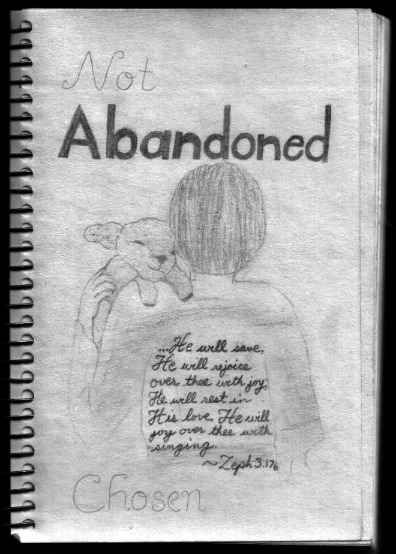 Not
Abandoned
...He will save,
He will rejoice
over thee with joy,
He will rest in
His love, He will
joy over thee with
singing.
~Zeph. 3:17b
Chosen